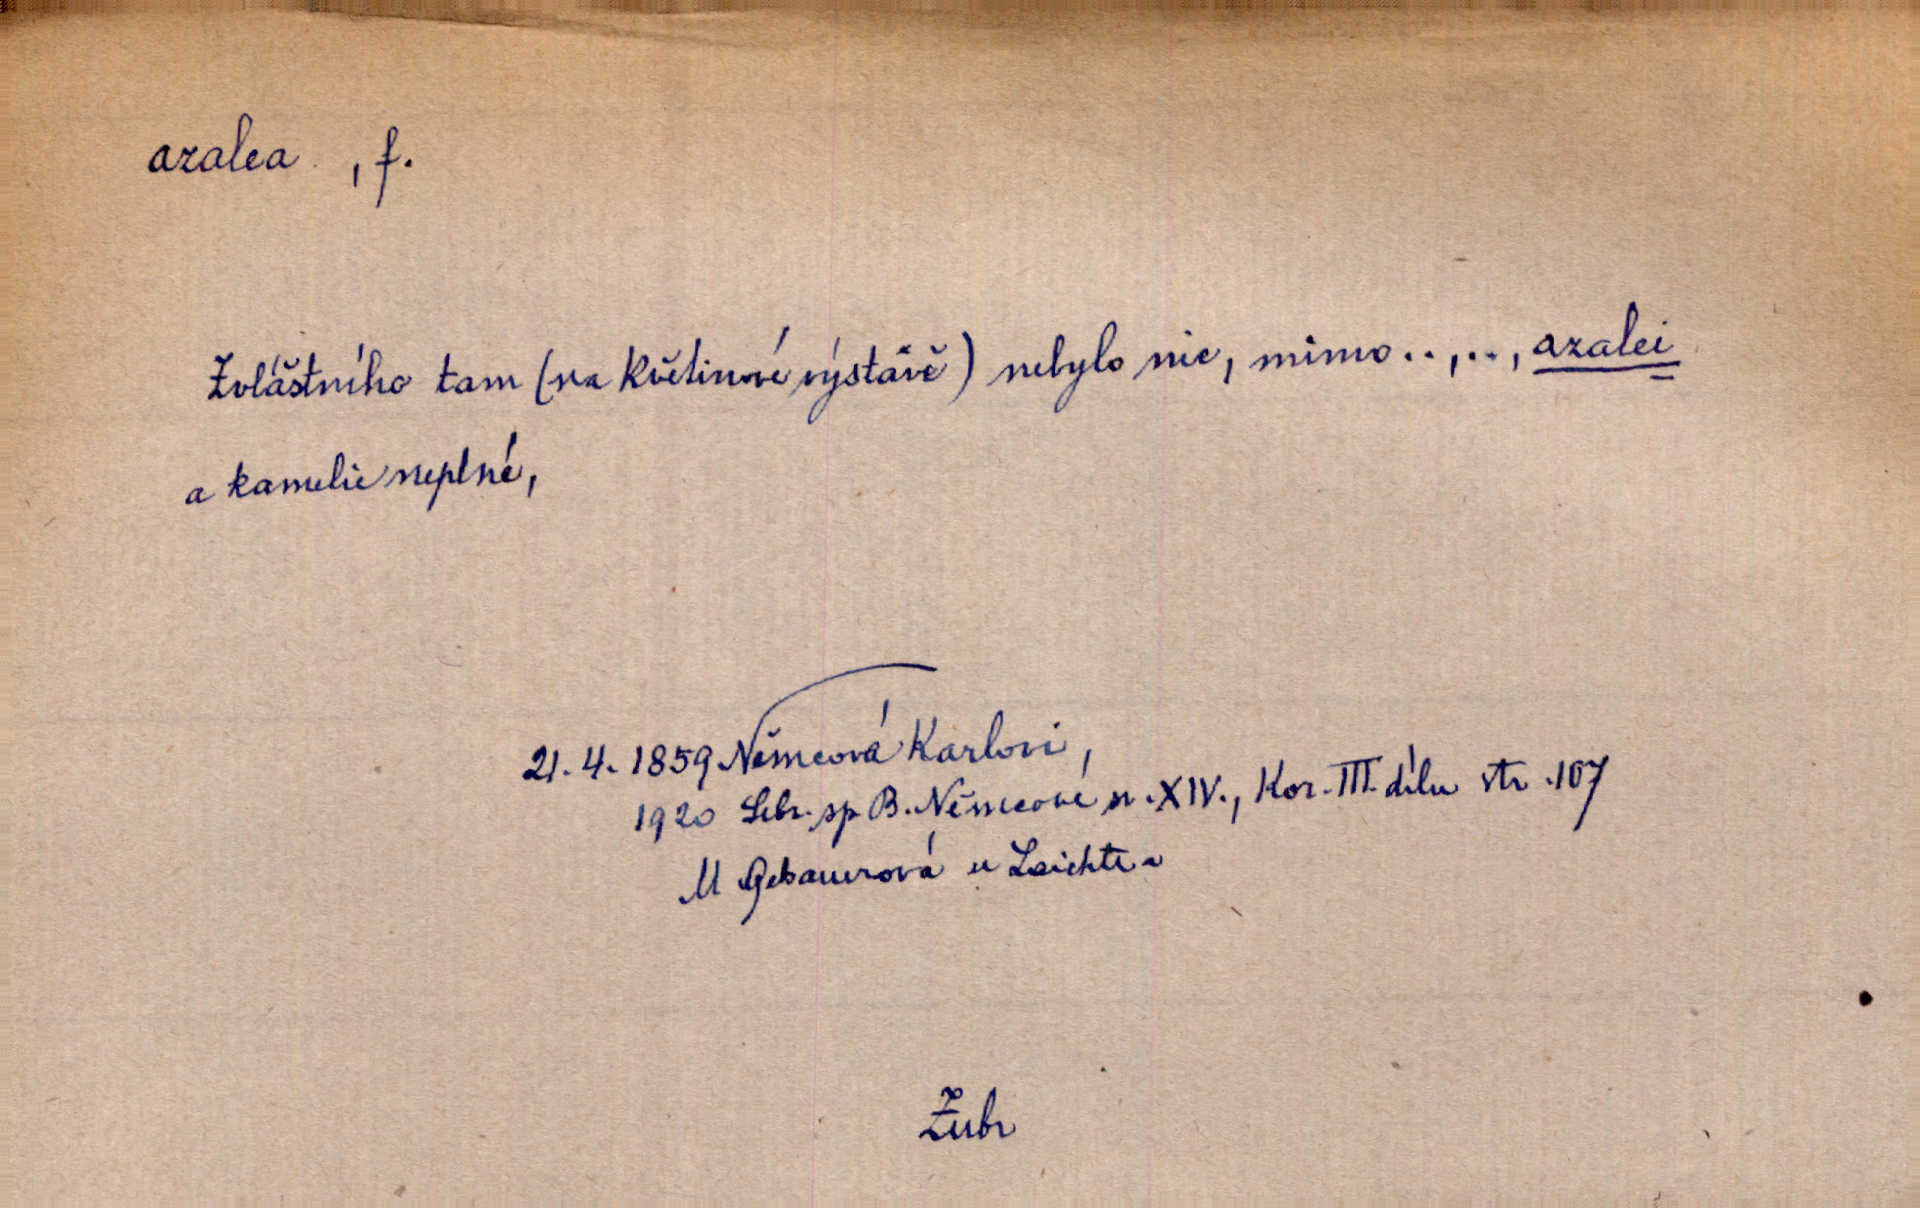 azalea , f.
Zvláštního tam (na květinové výstavě) nebylo nic, mimo..,.., azalei
a kamelie neplné,
21.4.1859 Němcová Karlovi,
1920 Sebr. sp B. Němcové sv. XIV., Kor. III. dílu str. 107
M Gebauerová u Laichtra
Žubr